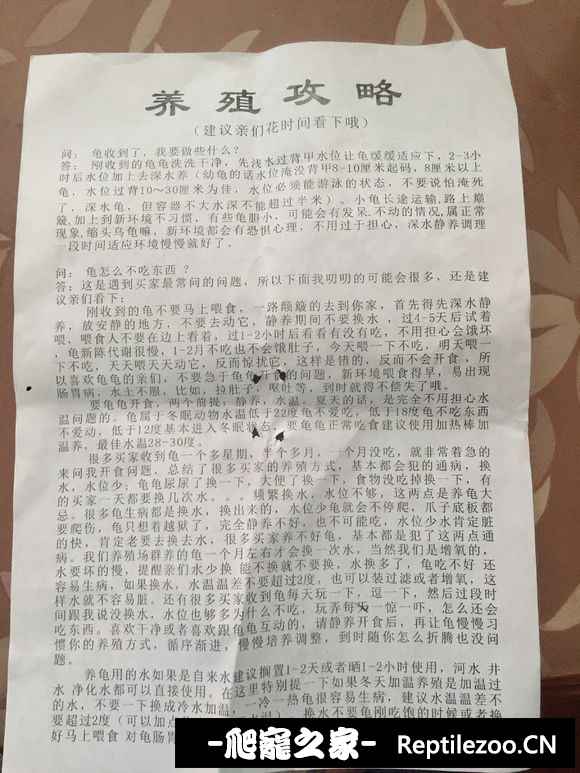 养殖攻略
(建议亲们花时间看下哦)
问: 龟收到了,我要做些什么?
答: 刚收到的龟龟洗洗干净,先浅水过背甲水位让龟缓缓适应下,2-3小
时后水位加上去深水养(幼龟的话水位淹没背甲8-10厘米起码,8厘米以上
龟,水位过背10~30厘米为佳,水位必须能游泳的状态,不要说怕淹死
了.深水龟,但容器不大水深不能超过半米)、小龟长途运输,路上颠
簸,加上到新环境不习惯,有些龟胆小,可能会有发呆.不动的情况,属正常
现象,缩头乌龟嘛,新环境都会有恐惧心理,不用过于担心,深水静养调理
一段时间适应环境慢慢就好了.
问: 龟怎么不吃东西 ?
答: 这是遇到买家最常问的问题,所以下面我叨叨的可能会很多,还是建
议亲们看下:
刚收到的龟不要马上喂食,一路颠簸的去到你家,首先得先深水静
养,放安静的地方,不要去动它,静养期间不要换水 ,过4-5天后试着
喂,喂食人不要在边上看着,过1-2小时后看看有没有吃,不用担心会饿坏
,龟新陈代谢很慢,1-2月不吃也不会饿肚子,今天喂一下不吃,明天喂一
下不吃,天天喂天天动它,反而惊扰它,这样是错的,反而不会开食 ,所
以喜欢龟龟的亲们,不要急于龟龟开食的问题,新环境喂食得早,易出现
肠胃病,水土不服,比如,拉肚子,呕吐等,到时就得不偿失了哦。
要龟龟开食,两个前提,静养,水温。夏天的话,是完全不用担心水
温问题的。龟属于冬眠动物水温低于22度龟不爱吃,低于18度龟不吃东西
不爱动,低于12度基本进入冬眠状态,要龟龟正常吃食建议使用加热棒加
温养,最佳水温28-30度。
很多买家收到龟一个多星期,半个多月,一个月没吃,就非常着急的
来问我开食问题,总结了很多买家的养殖方式,基本都会犯的通病,换
水,水位少;龟龟尿尿了换一下,大便了换一下,食物没吃掉换一下,有
的买家一天都要换几次水。。。频繁换水,水位不够,这两点是养龟大
忌。很多龟生病都是换水,换出来的,水位少龟就会不停爬,爪子底板都
要爬伤,龟只想着越狱了,完全静养不好,也不可能吃,水位少水肯定脏
的快,肯定老要去换去水,很多买家养不好龟,基本都是犯了这两点通
病。我们养殖场群养的龟一个月左右才会换一次水,当然我们是增氧的,
水要坏的慢,提醒亲们水少换 能不换就不要换,水换多了,龟吃不好 还
容易生病,如果换水,水温温差不要超过2度,也可以装过滤或者增氧,这
样水就不容易脏,还有很多买家收到龟每天玩一下,逗一下,然后过段时
间跟我说没换水,水位也够多为什么不吃,玩弄每天一惊一吓,怎么还会
吃东西。喜欢干净或者喜欢跟龟龟互动的,请静养开食后,再让龟慢慢习
惯你的养殖方式,循序渐进,慢慢培养调整,到时随你怎么折腾也没问
题。
养龟用的水如果是自来水建议搁置1-2天或者晒1-2小时使用,河水 井
水 净化水都可以直接使用,在这里特别提一下如果冬天加温养殖是加温过
的水,不要一下换成冷水加温,一冷一热龟很容易生病,建议水温温差不
要超过2度(可以加点 换水不要龟刚吃饱的时候或者换
好马上喂食 对龟肠胃
-爬寵之家- ReptileZoo.CN